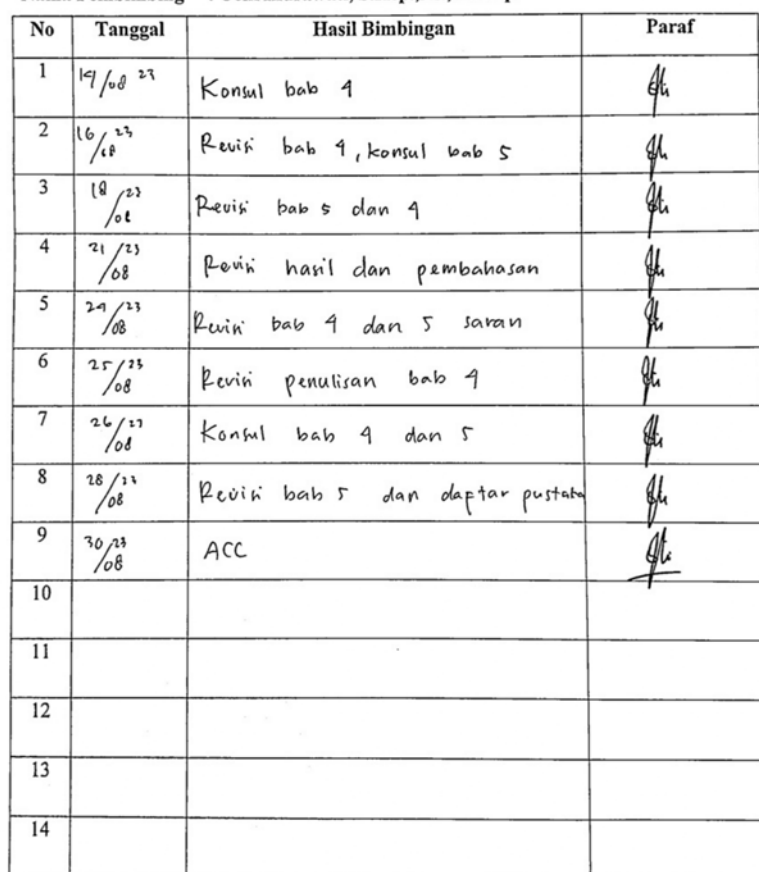 No Tanggal Hasil Bimbingan Paraf
1 14/08 23 Konsul bab 4
2 16/08 23 Revisi bab 4, konsul bab 5
3 18/08 23 Revisi bab 5 dan 4
4 21/08 23 Revisi hasil dan pembahasan
5 24/08 23 Revisi bab 4 dan 5 saran
6 25/08 23 Revisi penulisan bab 4
7 26/08 23 Konsul bab 4 dan 5
8 28/08 23 Revisi bab 5 dan daptar pustaka
9 30/08 23 ACC
10
11
12
13
14